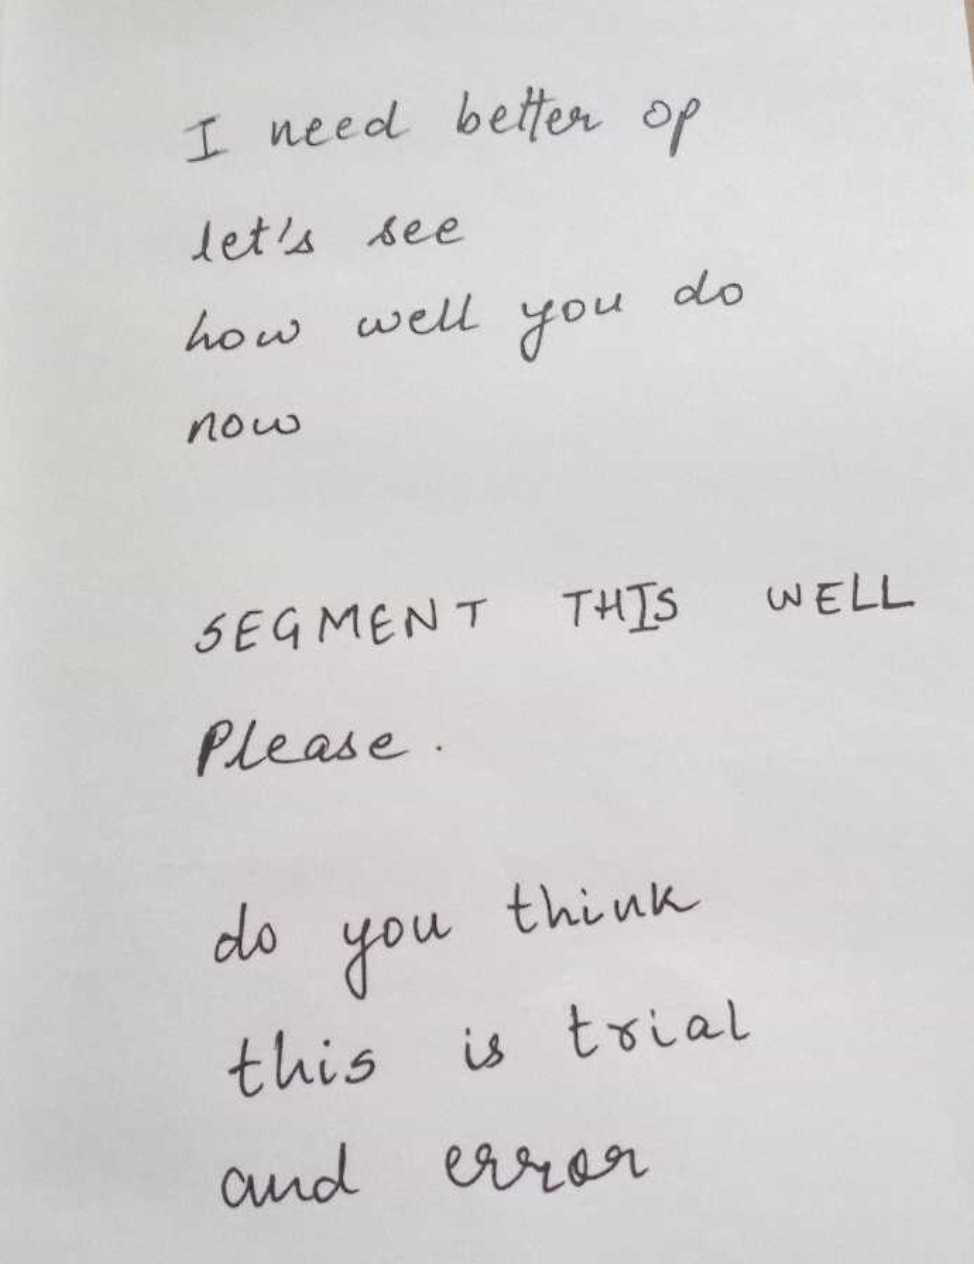 I need better op
let's see
how well you do
now
SEGMENT THIS WELL
Please.
do you think
this is trial
and error